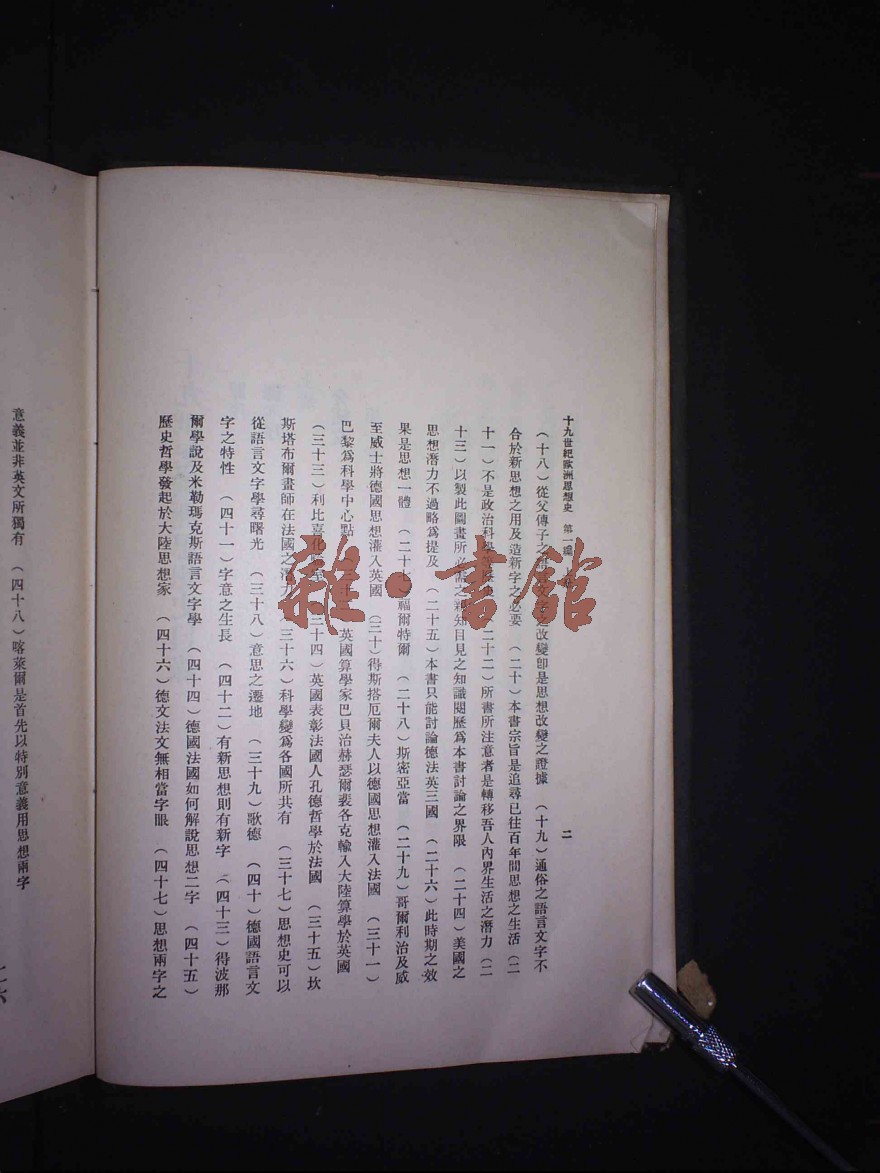 十九世紀歐洲思想史 第一編
二
（十八）從父傳子之語言文字之改變卽是思想改變之證據 （十九）通俗之語言文字不
合於新思想之用及造新字之必要 （二十）本書宗旨是追尋已往百年間思想之生活 （二
十一）不是政治科學 （二十二）所書所注意者是轉移吾人內界生活之潛力 （二
十三）以製此圖畫所必需之親知目見之知識閱歷爲本書討論之界限 （二十四）美國之
思想潛力不過略爲提及 （二十五）本書只能討論德法英三國 （二十六）此時期之效
果是思想一體 （二十七）福爾特爾 （二十八）斯密亞當 （二十九）哥爾利治及威
至威士將德國思想灌入英國 （三十）得斯搭厄爾夫人以德國思想灌入法國 （三十一）
巴黎爲科學中心點 英國算學家巴貝治赫瑟爾裴各克輸入大陸算學於英國
（三十三）利比喜化 （三十四）英國表彰法國人孔德哲學於法國 （三十五）坎
斯塔布爾畫師在法國之潛力 （三十六）科學變爲各國所共有 （三十七）思想史可以
從語言文字學尋曙光 （三十八）意思之遷地 （三十九）歌德 （四十）德國語言文
字之特性 （四十一）字意之生長 （四十二）有新思想則有新字 （四十三）得波那
爾學說及米勒瑪克斯語言文字學 （四十四）德國法國如何解說思想二字 （四十五）
歷史哲學發起於大陸思想家 （四十六）德文法文無相當字眼 （四十七）思想兩字之
意義並非英文所獨有 （四十八）喀萊爾是首先以特別意義用思想兩字
雜·書館